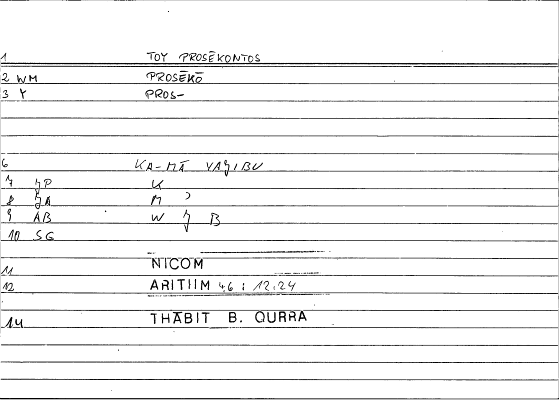 1 TOY PROSĒKONTOS
2 WM PROSĒKŌ
3 PROS-
6 KA-MĀ
7 K
8 M
9 AB W B
10 SG
11 NICOM
12 ARITIIM 46 : 12.24
14 THĀBIT B. QURRA